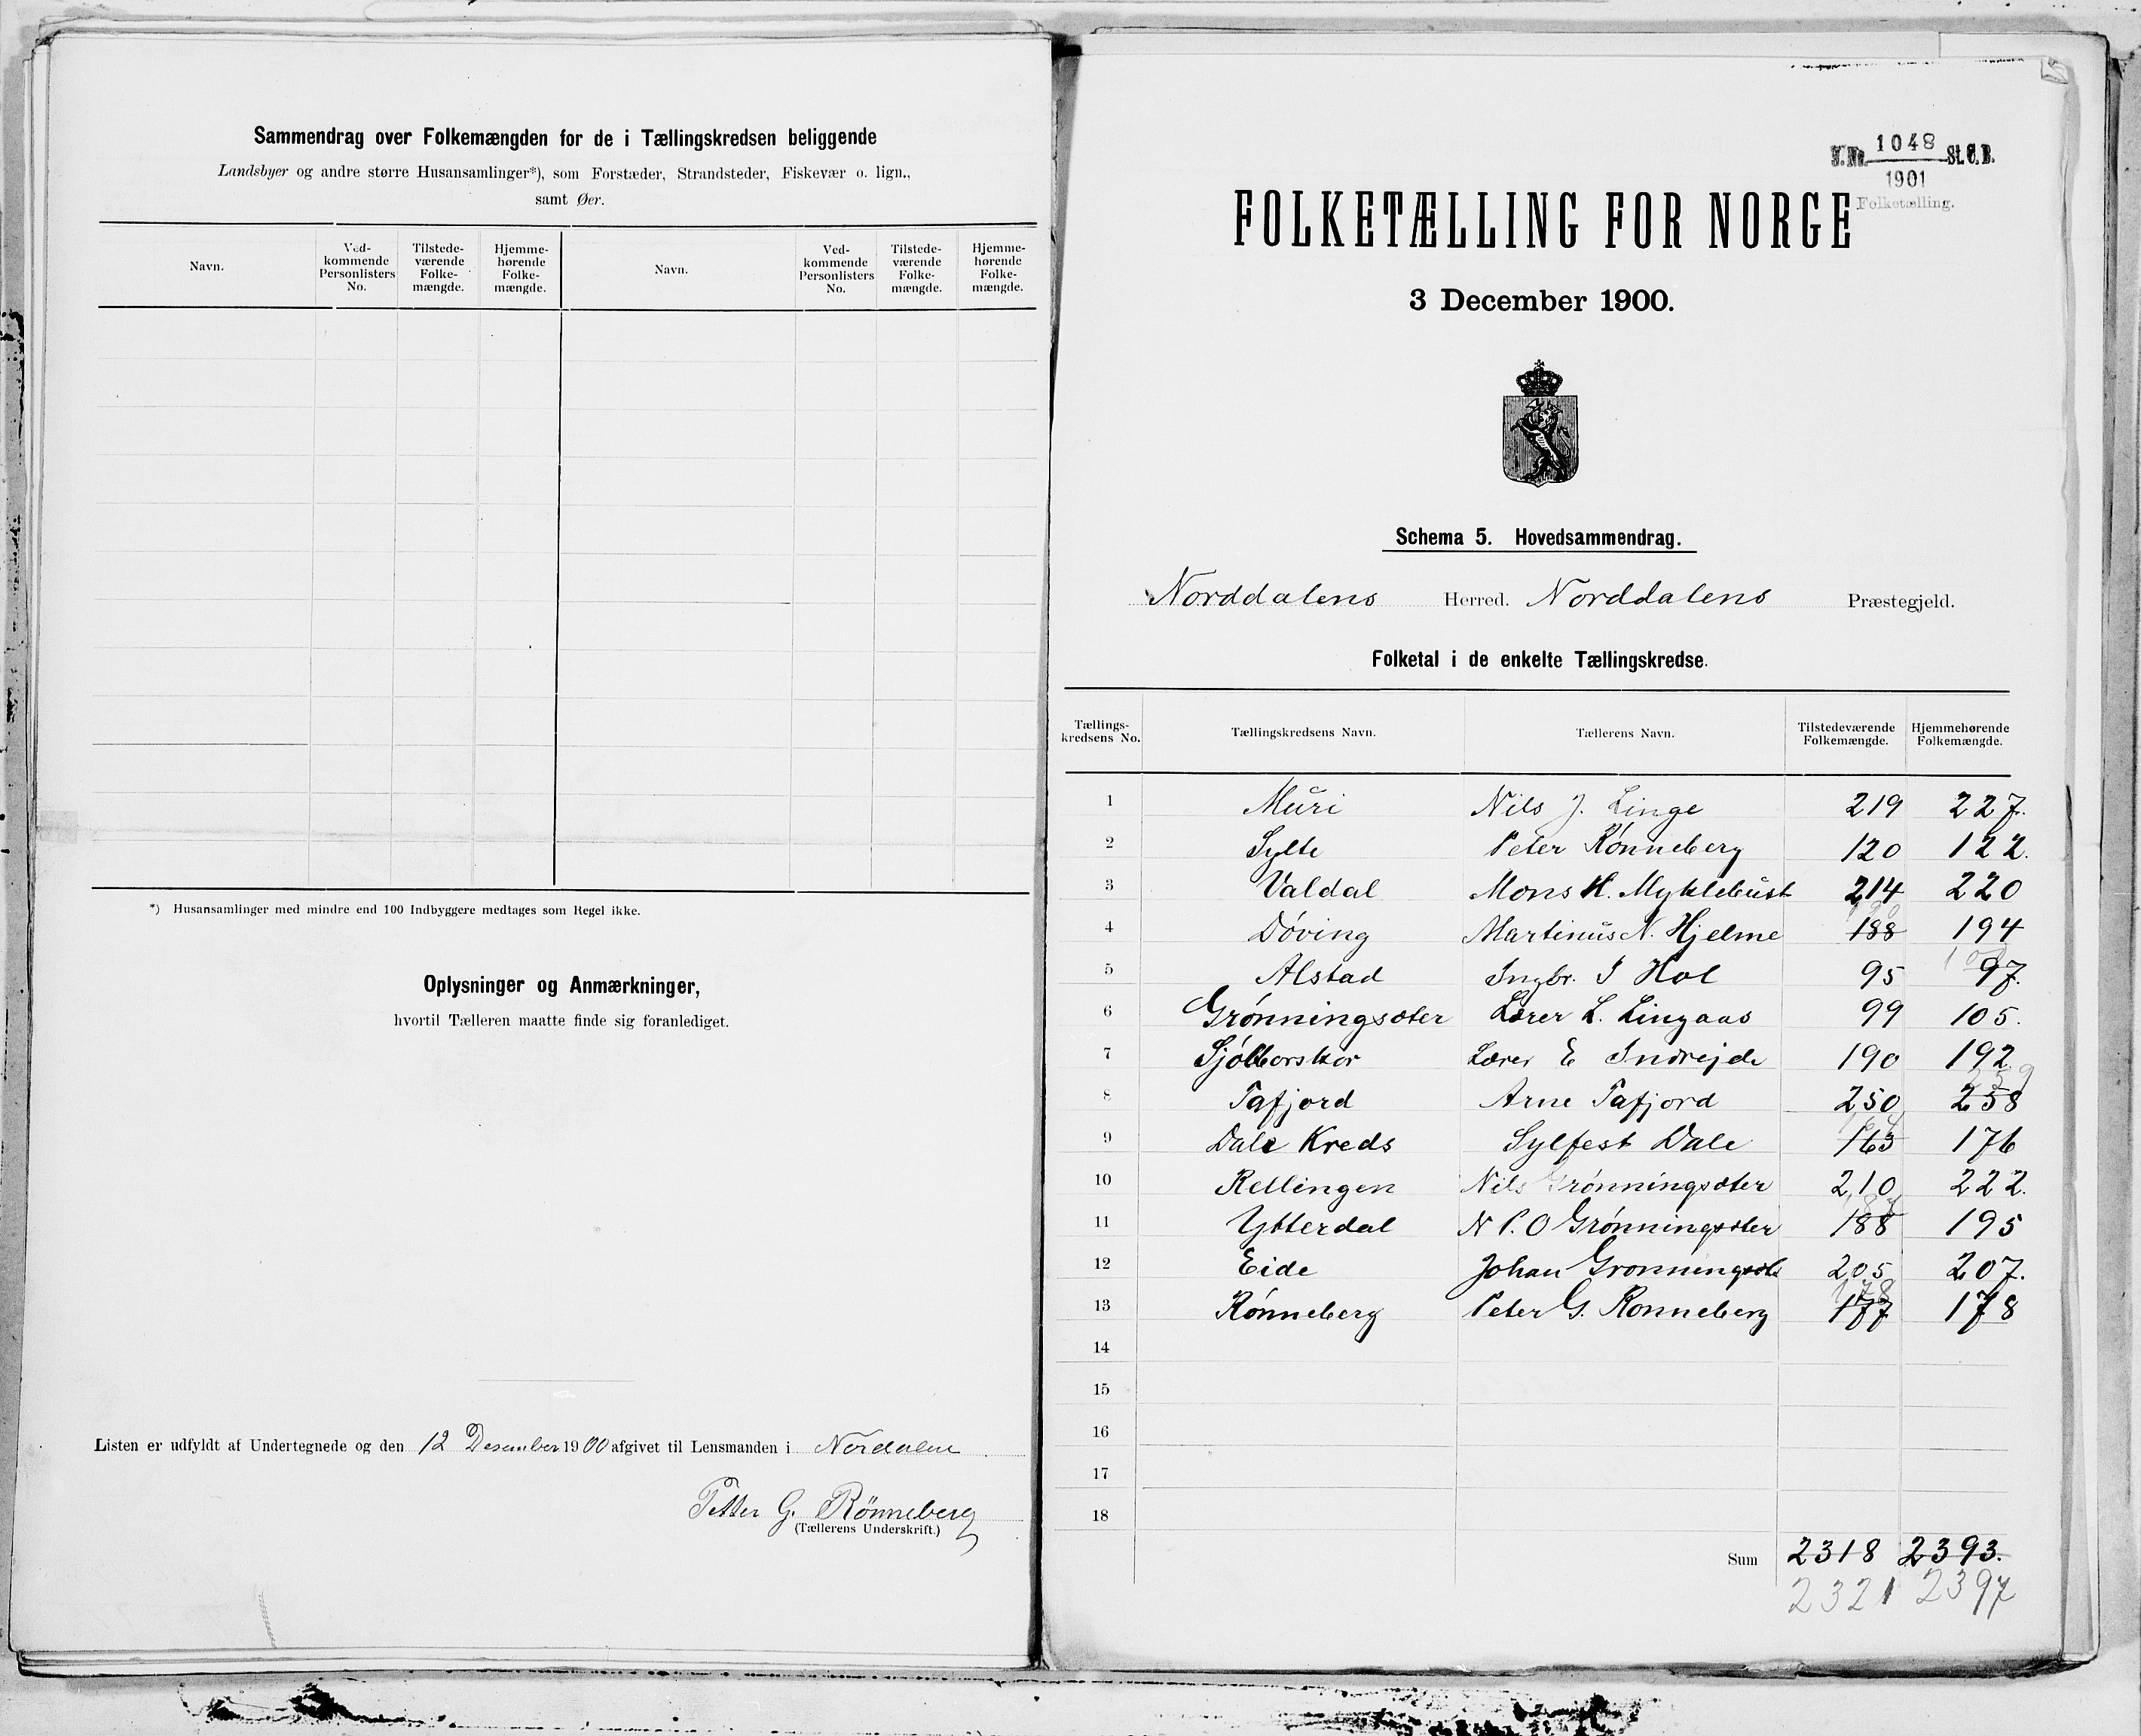 Sammendrag over Folkemængden for de i Tællingskredsen beliggende
Landsbyer og andre større Husansamlinger*), som Forstæder, Strandsteder, Fiskevær o. lign.,
samt Øer.
Navn. Ved-kommende Personlisters No. Tilstede-værende Folke-mængde. Hjemme-hørende Folke-mængde. Navn. Ved-kommende Personlisters No. Tilstede-værende Folke-mængde. Hjemme-hørende Folke-mængde.
*) Husansamlinger med mindre end 100 Indbyggere medtages som Regel ikke.
Oplysninger og Anmærkninger,
hvortil Tælleren maatte finde sig foranlediget.
Listen er udfyldt af Undertegnede og den 12 Desember 1900 afgivet til Lensmanden i Nordalen
Petter G. Rönneberg
(Tællerens Underskrift.)
J. No. 1048 St. C. B.
1901
Folketælling.
FOLKETÆLLING FOR NORGE
3 December 1900.
Schema 5. Hovedsammendrag.
Norddalens Herred. Norddalens Præstegjeld.
Folketal i de enkelte Tællingskredse.
Tællings-kredsens No. Tællingskredsens Navn. Tællerens Navn. Tilstedeværende Folkemængde. Hjemmehørende Folkemængde.
1 Muri Nils J. Linge 219 227.
2 Sylte Peter Rønneberg 120 122.
3 Valdal Mons H. Myklebust 214 220
4 Døving Martinus N. Hjelme 188 194
5 Alstad Ingbr. I Hol 95 97.
6 Grønningsæter Lærer L. Lingaas 99 105.
7 Lærer E Indrejde 190 192
8 Tafjord Arne Tafjord 250 258 259
9 Dale Kreds Sylfest Dale 163 176
10 Rellingen Nils Grønningsæter 210 222.
11 Ytterdal N P. O Grønningsæter 188 195
12 Eide Johan 205 207.
13 Rønneberg Peter G. Ronneberg 177 178 178
14
15
16
17
18
Sum 2318 2393.
2321 2397